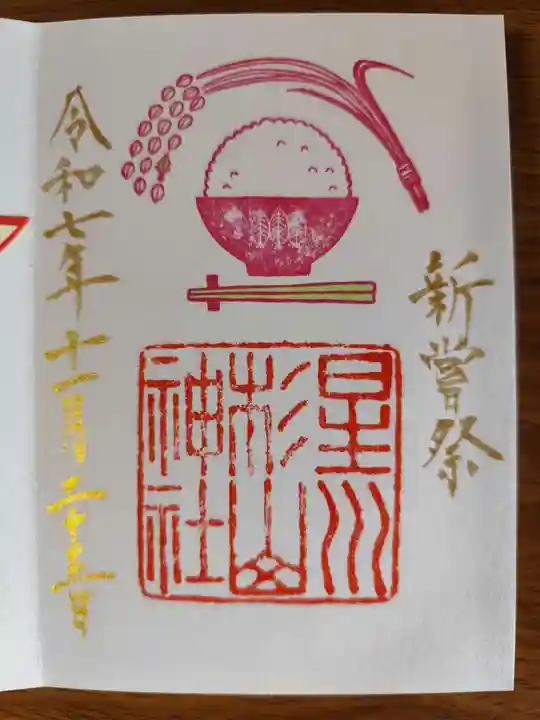 新嘗祭
星川
杉山
神社
令和七年十一月二十三日